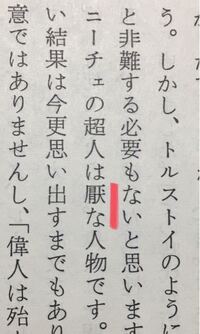 う。しかし、トルストイのように
と非難する必要もないと思います
ニーチェの超人は厭な人物です。
い結果は今更思い出すまでもあり
意ではありませんし、「偉人は殆